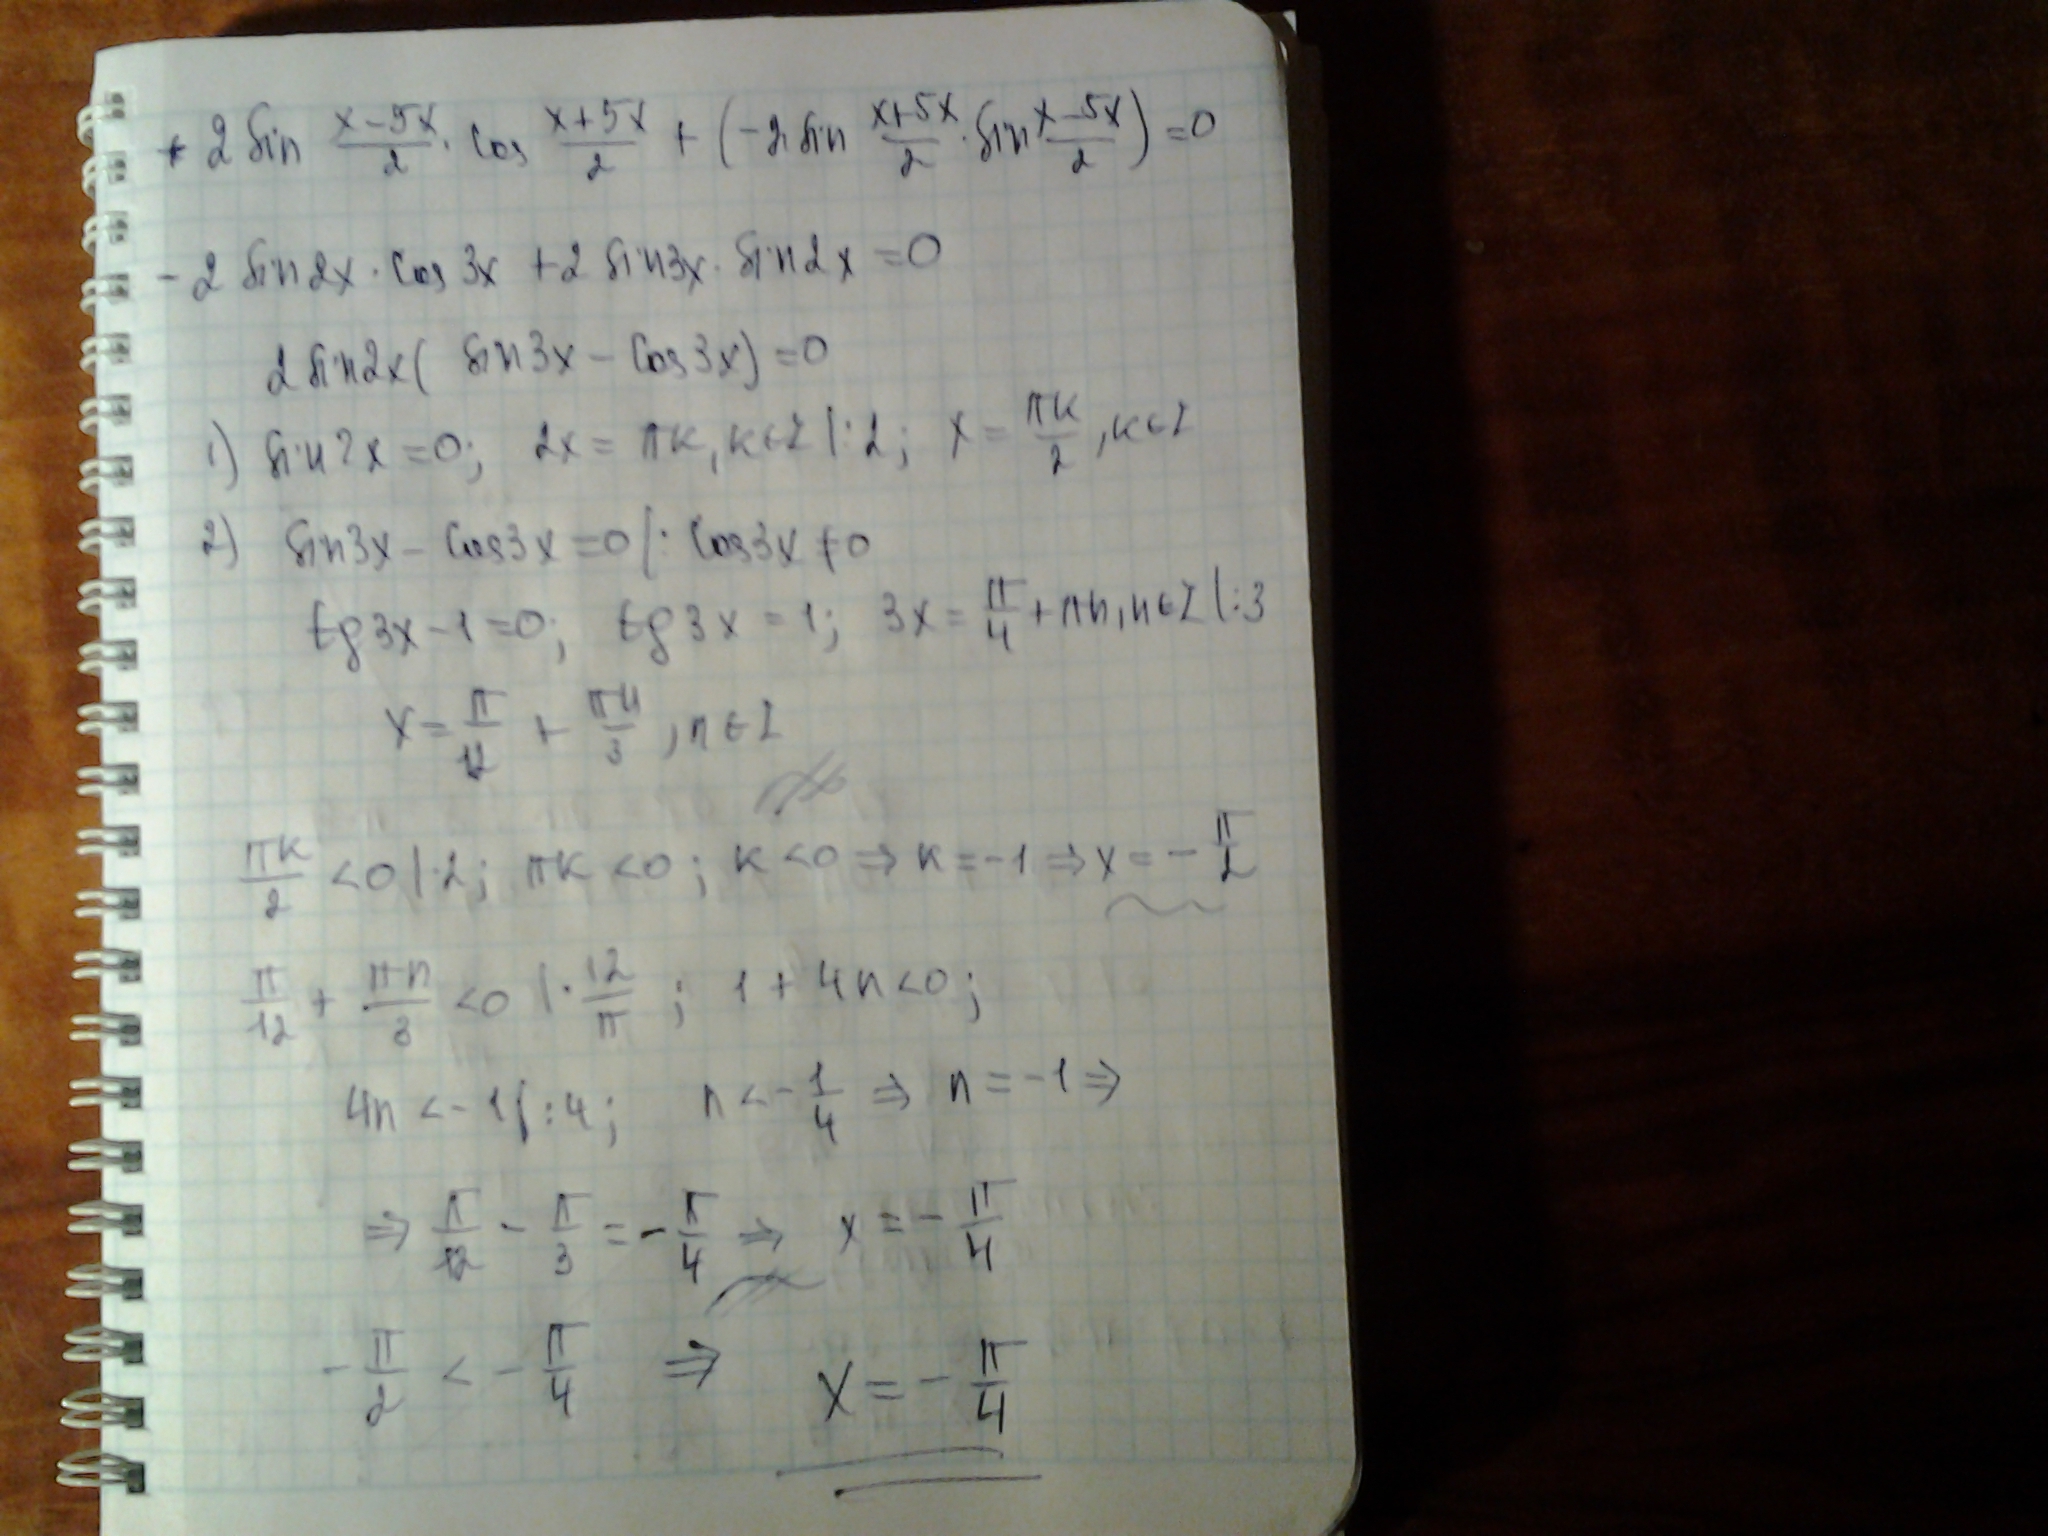 2 sin (x-5x)/2 · cos (x+5x)/2 + (-2 sin (x+5x)/2 · sin (x-5x)/2) = 0
-2 sin 2x · cos 3x + 2 sin 3x · sin 2x = 0
2 sin 2x ( sin 3x - cos 3x) = 0
1) sin 2x = 0; 2x = πk, k∈Z |:2; x = πk/2, k∈Z
2) sin 3x - cos 3x = 0 |: cos 3x ≠ 0
tg 3x - 1 = 0; tg 3x = 1; 3x = π/4 + πn, n∈Z |:3
x = π/12 + πn/3, n∈Z
πk/2 < 0 |·2; πk < 0; k < 0 ⇒ k = -1 ⇒ x = -π/2
π/12 + πn/3 < 0 |· 12/π; 1 + 4n < 0;
4n < -1 |:4; n < -1/4 ⇒ n = -1 ⇒
⇒ π/12 - π/3 = -π/4 ⇒ x = -π/4
-π/2 < -π/4 ⇒ x = -π/4